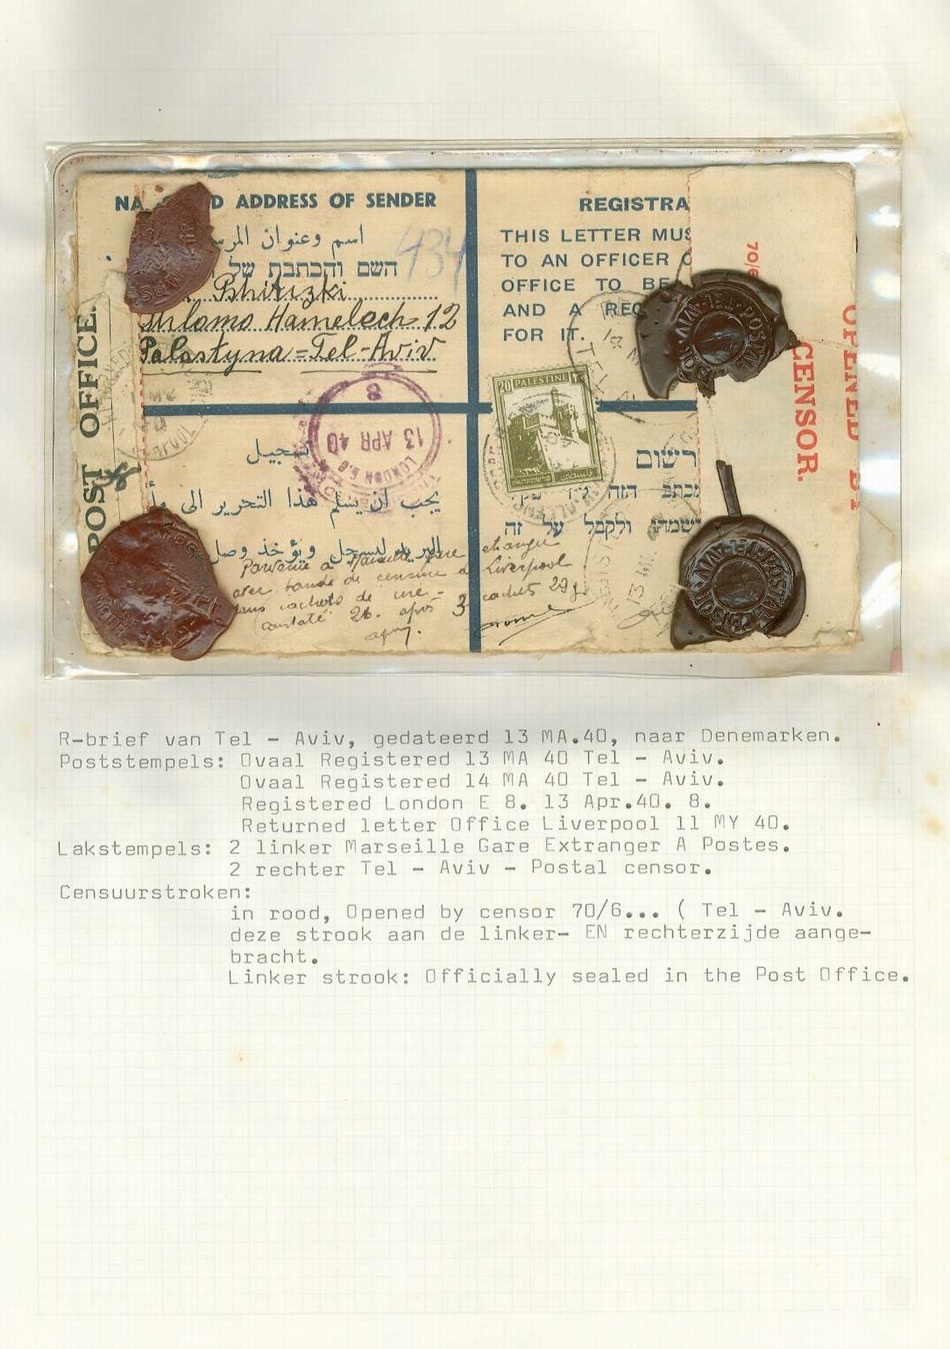 ADDRESS OF SENDER
اسم وعنوان
השם והכתבת של
434
Shlomo Hamelech 12
Palastyna = Tel-Aviv
REGISTRA
THIS LETTER MUS
TO AN OFFICER
OFFICE TO BE
AND A REC
FOR IT.
POST OFFICE.
13 APR 40
LONDON
8
20 PALESTINE
تسجيل
يجب ان يسلم هذا التحرير الى
ويؤخذ وصل
רשום
ולקבל על זה
13 MA
avec bande de censure à Liverpool
sans cachets de cire =
constaté 26. après 3 cachets 29 g
70/6
OPENED BY
CENSOR.
TEL-AVIV-POSTAL
CENSOR
R-brief van Tel - Aviv, gedateerd 13 MA.40, naar Denemarken.
Poststempels: Ovaal Registered 13 MA 40 Tel - Aviv.
Ovaal Registered 14 MA 40 Tel - Aviv.
Registered London E 8. 13 Apr.40. 8.
Returned letter Office Liverpool 11 MY 40.
Lakstempels: 2 linker Marseille Gare Extranger A Postes.
2 rechter Tel - Aviv - Postal censor.
Censuurstroken:
in rood, Opened by censor 70/6... ( Tel - Aviv.
deze strook aan de linker- EN rechterzijde aange-
bracht.
Linker strook: Officially sealed in the Post Office.